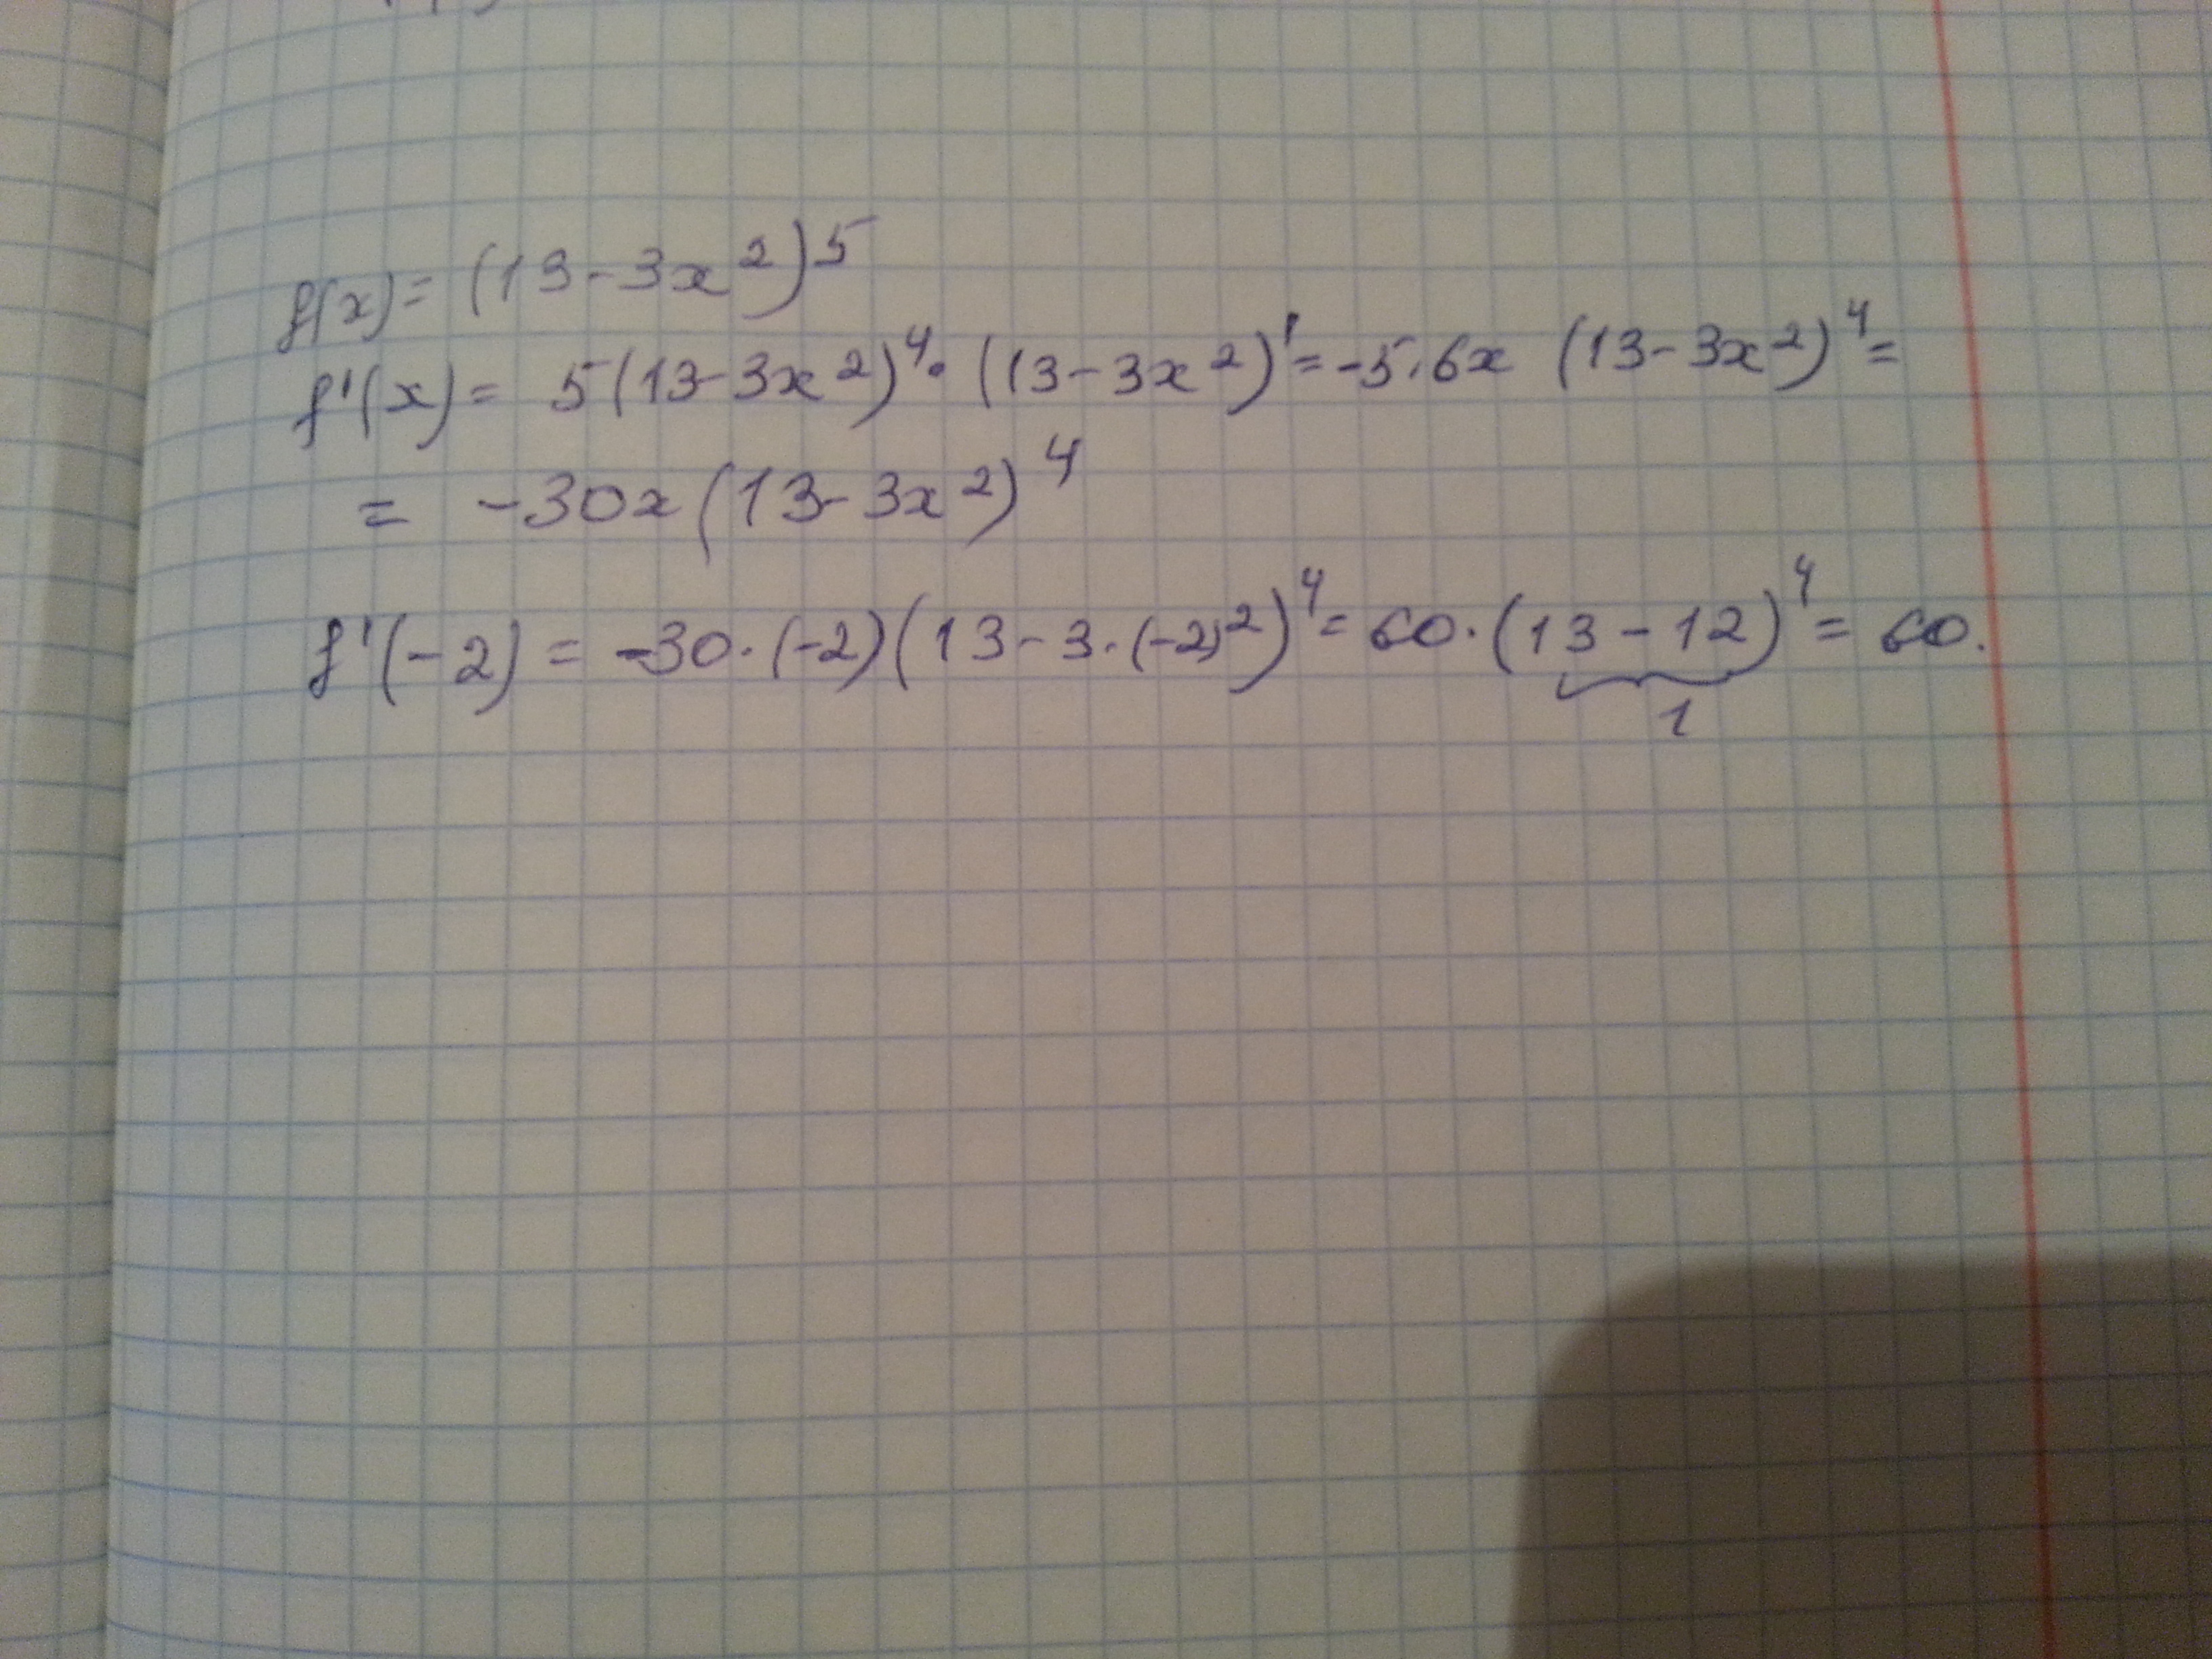 f(x) = (13 - 3x²)⁵
f'(x) = 5(13 - 3x²)⁴ · (13 - 3x²)' = -5 · 6x (13 - 3x²)⁴ =
= -30x(13 - 3x²)⁴
f'(-2) = -30 · (-2)(13 - 3 · (-2)²)⁴ = 60 · (13 - 12)⁴ = 60.
1